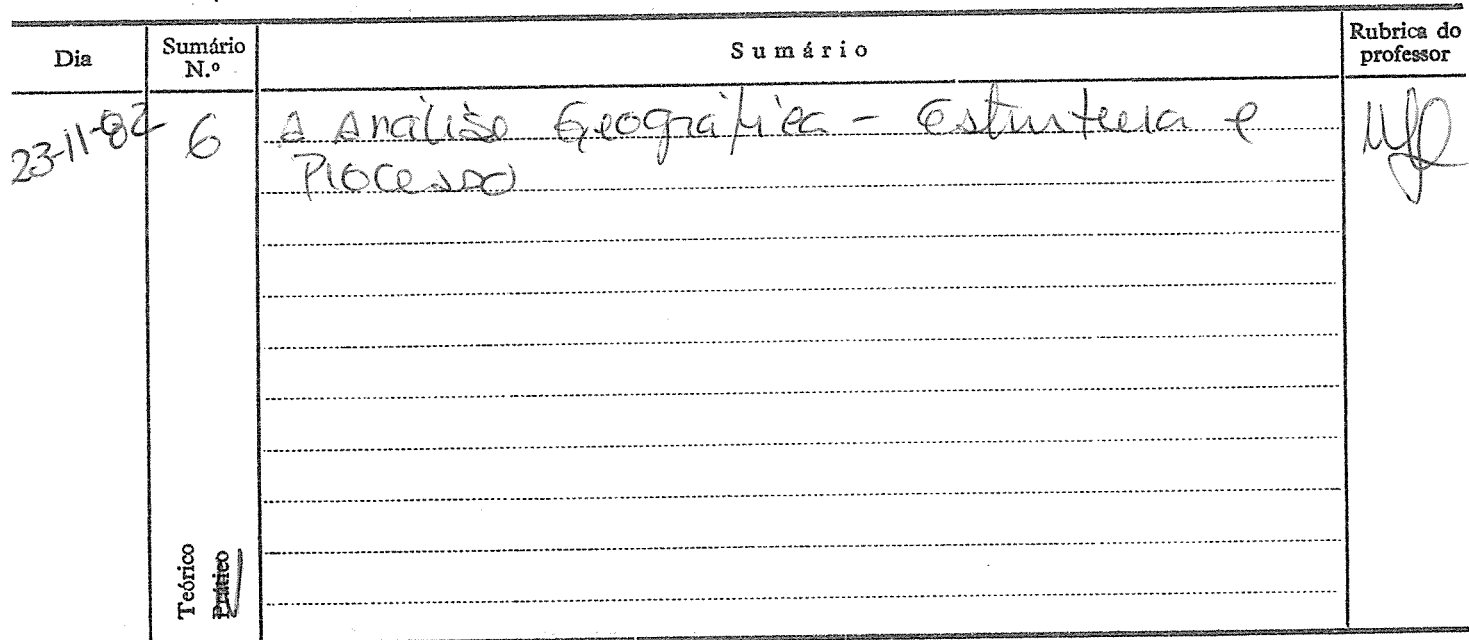 Dia
Sumário N.º
Sumário
Rubrica do professor
23-11-82
6
A Análise Geográfica - Estrutura e
Processo
Teórico
Prático